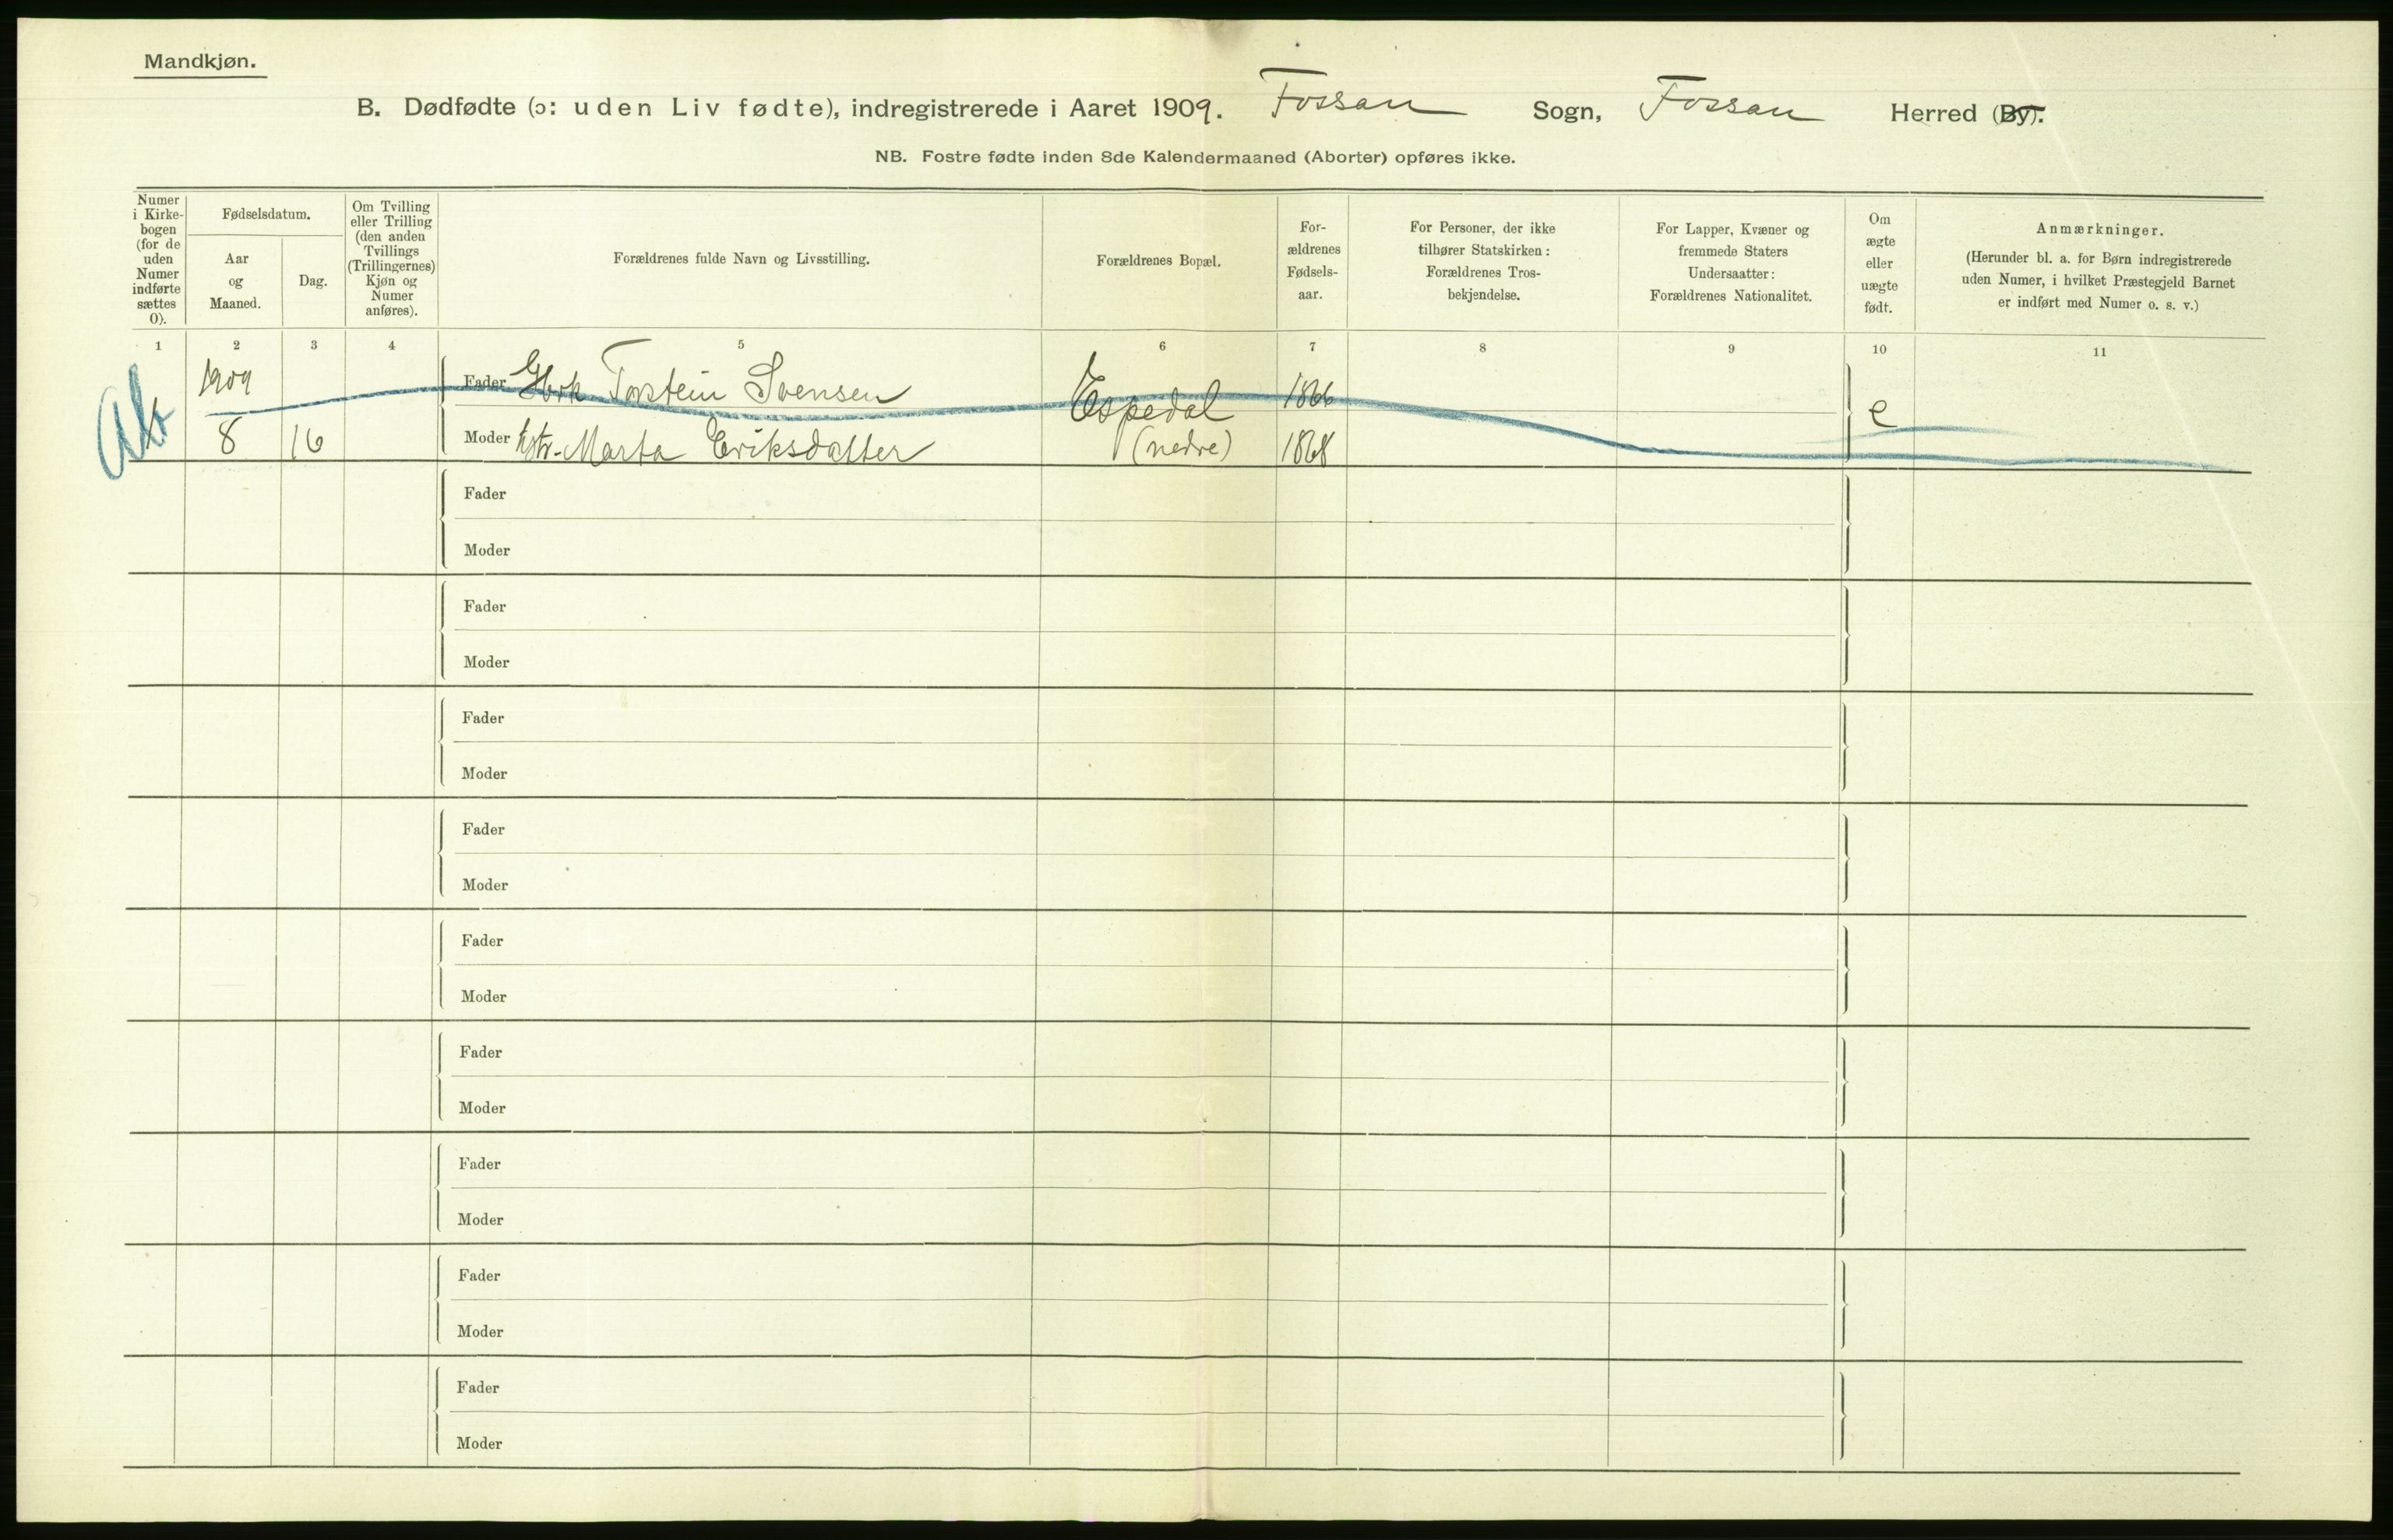 Mandkjøn.
B. Dødfødte (ɔ: uden Liv fødte), indregistrerede i Aaret 1909. Fossan Sogn, Fossan Herred (By).
NB. Fostre fødte inden 8de Kalendermaaned (Aborter) opføres ikke.
Numer
i Kirke-
bogen
(for de
uden
Numer
indførte
sættes
0).
Fødselsdatum.
Aar
og
Maaned.
Dag.
Om Tvilling
eller Trilling
(den anden
Tvillings
(Trillingernes)
Kjøn og
Numer
anføres).
Forældrenes fulde Navn og Livsstilling.
Forældrenes Bopæl.
For-
ældrenes
Fødsels-
aar.
For Personer, der ikke
tilhører Statskirken:
Forældrenes Tros-
bekjendelse.
For Lapper, Kvæner og
fremmede Staters
Undersaatter:
Forældrenes Nationalitet.
Om
ægte
eller
uægte
født.
Anmærkninger.
(Herunder bl. a. for Børn indregistrerede
uden Numer, i hvilket Præstegjeld Barnet
er indført med Numer o. s. v.)
1 2 3 4 5 6 7 8 9 10 11
1909 Fader Gbrk Torstein Svensen Espedal 1866 e
8 16 Moder hstr. Marta Eriksdatter (nedre) 1868
Fader
Moder
Fader
Moder
Fader
Moder
Fader
Moder
Fader
Moder
Fader
Moder
Fader
Moder
Fader
Moder
Fader
Moder